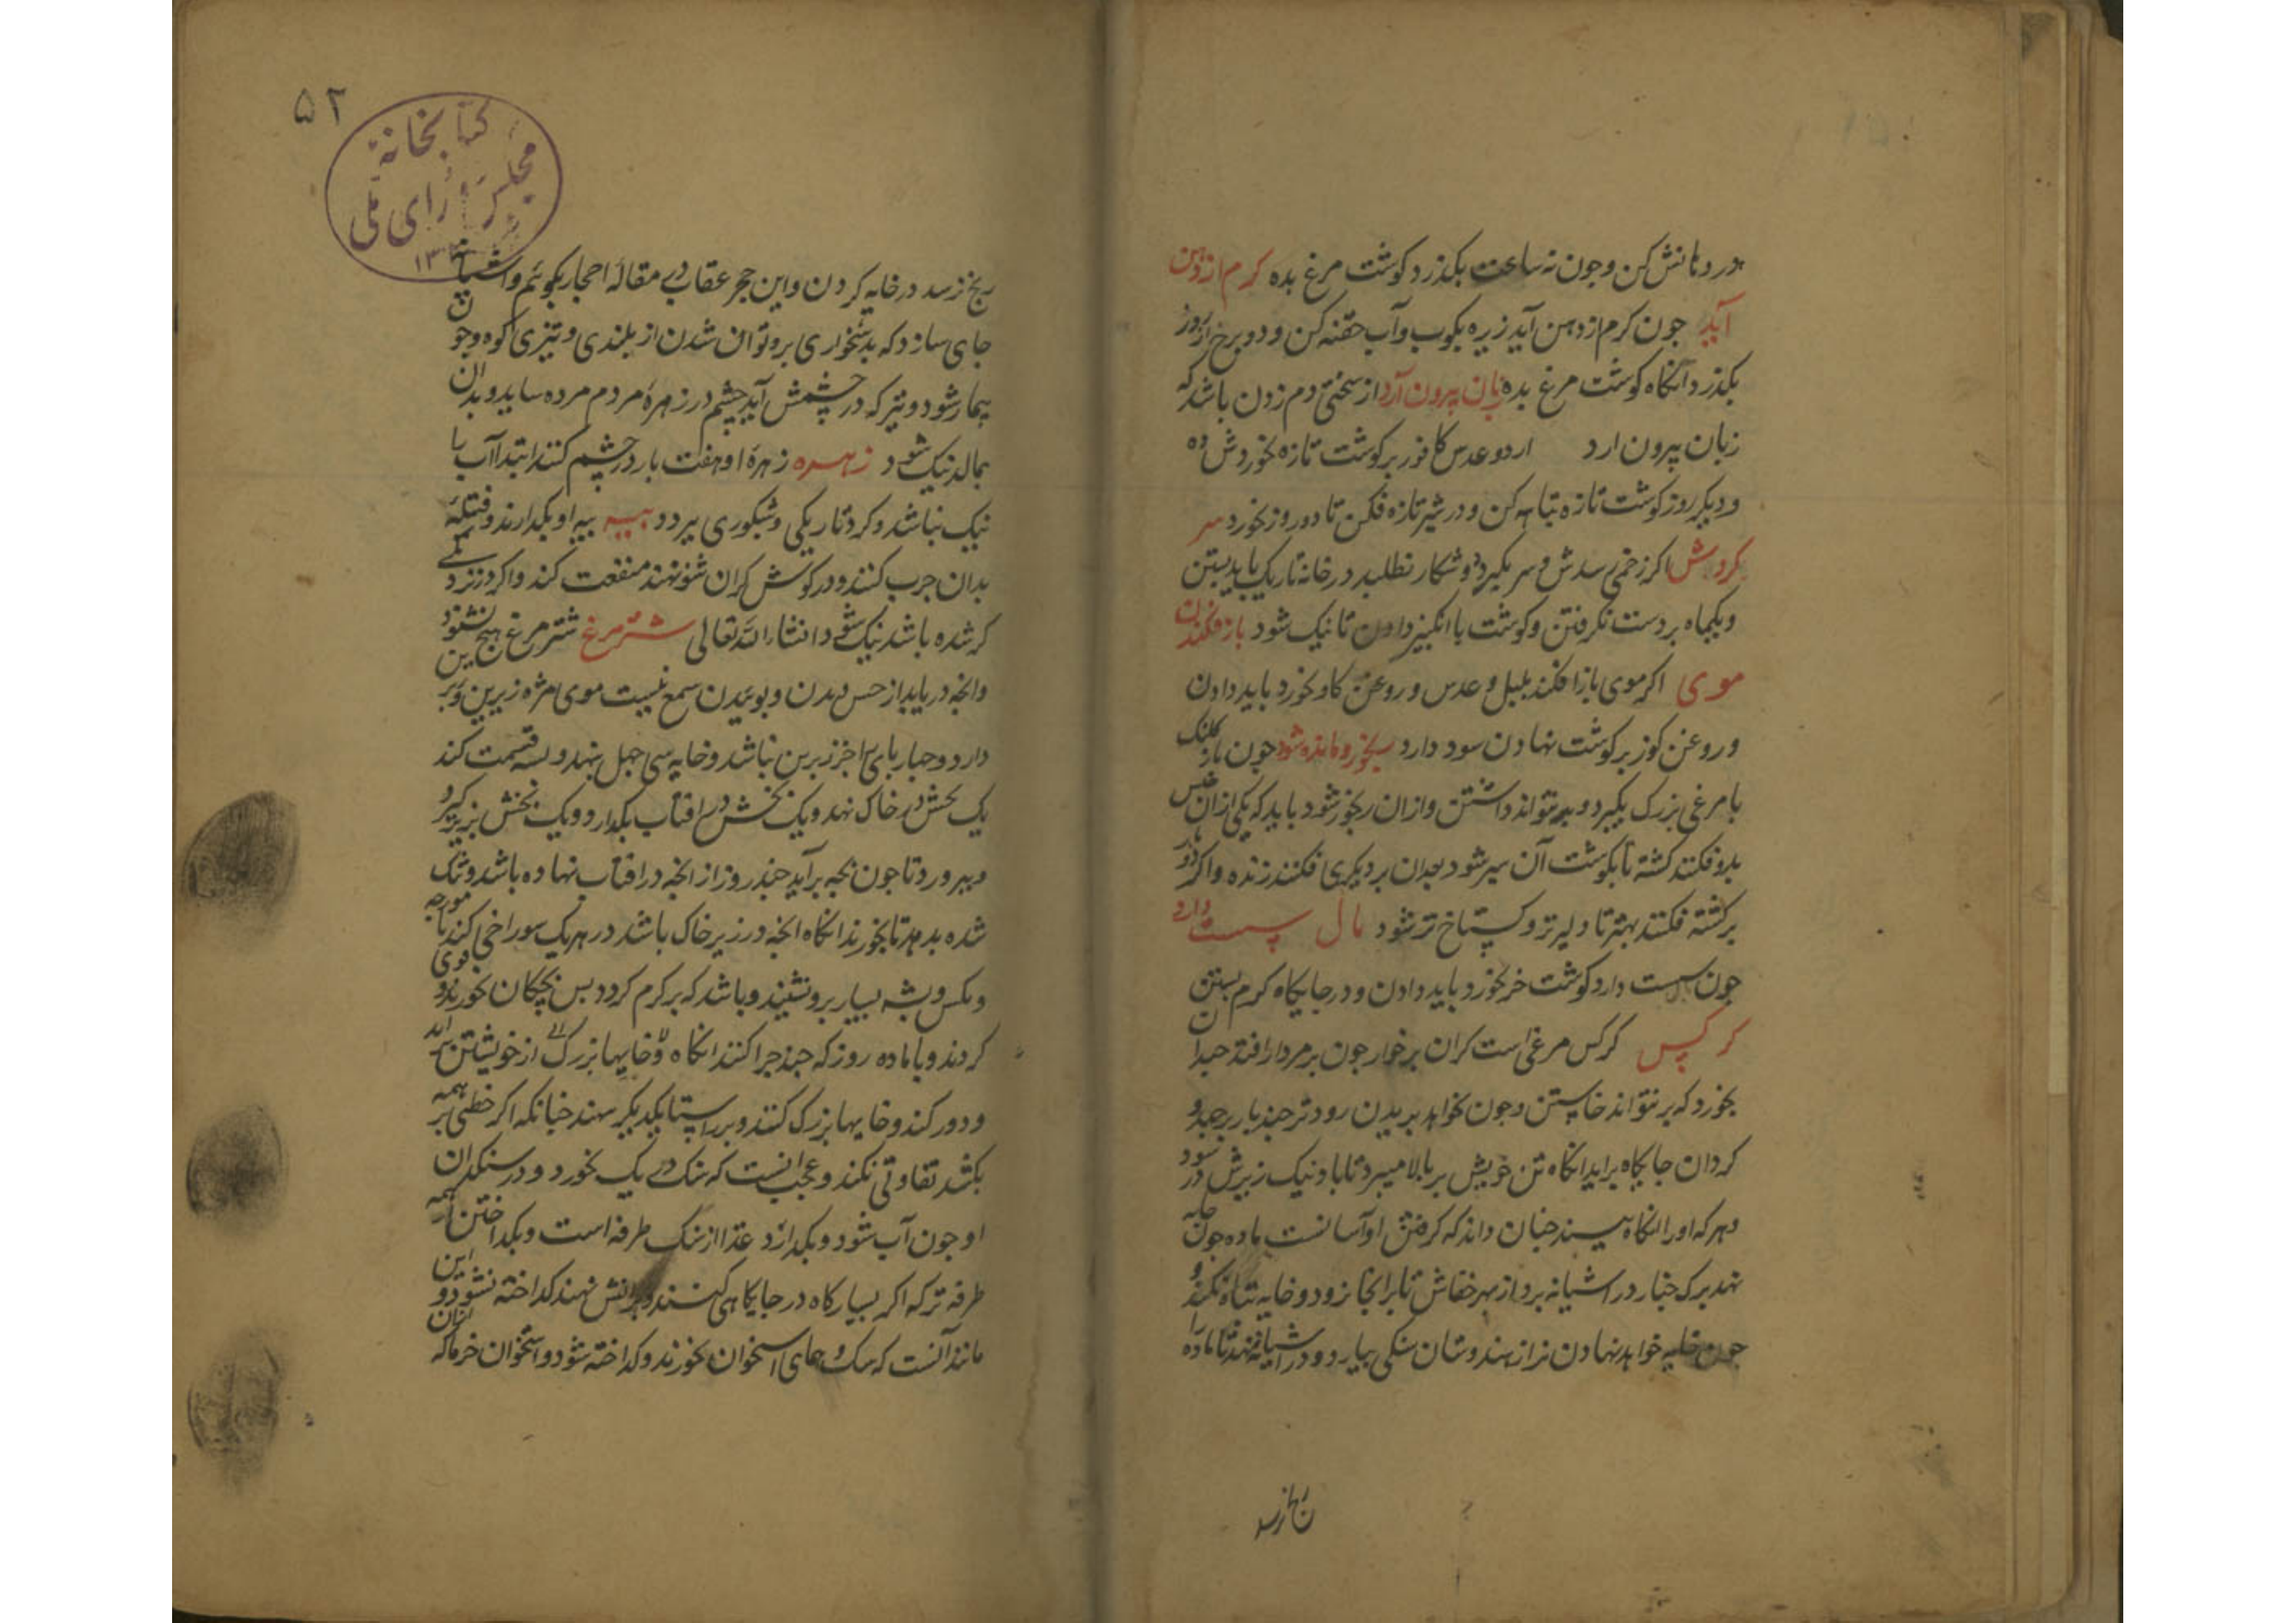 در دهانش کن و چون نه ساعت بکذرد کوشت مرغ بده کرم از دهن
آید جون کرم از دهن آید زیره بکوب وآب حقنه کن و دو برخ از روز
بکذرد آنگاه کوشت مرغ بده زبان بیرون آرد از سختی دم زدن باشد که
زبان بیرون ارد اردو عدس کافور بر کوشت تازه بخورش ده
و دیکر روز کوشت تازه تباه کن و در شیر تازه فکن تا دو روز بخورد سر
کردش اکر زخمی رسدش و سر بکیرد و شکار نطلبد در خانه تاریک باید بستن
و یکماه بر دست نکرفتن و کوشت با انکبین دادن تا نیک شود باز فکندن
موی اکر موی باز افکند بلبل و عدس و روغن کاو بخورد باید دادن
و روغن کوز بر کوشت نهادن سود دارد رنجور و مانده شود جون باز کلنک
یا مرغی بزرک بکیرد و بد نتواند داشتن و ازان رنجور شود باید که یکی ازان جنس
بدو فکنند کشته تا بکوشت آن سیر شود بعدان بر دیکری فکنند زنده و اکر
بر کشته فکنند بهتر تا دلیر تر و کستاخ تر شود بال سست دارد
جون سست دارد کوشت خر بخورد باید دادن و در جایکاه کرم بستن
کرکس کرکس مرغی است کران بر خوار جون بر مردار افتد جندان
بخورد که بر نتواند خاستن و جون بخواهد بریدن رود تر جند بار برجهد و
کردان جایکاه برآید انکاه تن خویش بر بالا میبرد تا باد نیک زیرش در شود
و هر که اورا انکاه بیند جنان داند که کرفتن او آسانست ماده جون خایه
نهد برک جنار در اشیانه برد از بهر خفاش تا بر انجا نرود و خایه تباه نکند و
جون خایه خواهد نهادن نر از هندوستان سنکی بیارد و در اشیانه نهد تا ماده را
رنج نرسد
۵۲
کتابخانه
مجلس شورای ملی
رنج نرسد در خایه کردن و این حجر عقاب در مقاله احجار بکوئیم و اشیانه
جای سازد که بدشخواری برو توان شدن از بلندی و تیزی کوه و جون
بیمار شود و تیرکه در جشمش آید جشم در زهره مردم مرده ساید و بدان
بمالد نیک شود زهره زهره او هفت بار در جشم کنند ابتدا آب با
نیک نباشد و کرد تاریکی و شبکوری ببرد و بیه بیه او بکدارند و فتیله
بدان جرب کنند و در کوش کران شنو نهند منفعت کند و اکر دزد
کر شده باشد نیک شود انشاء الله تعالی شترمرغ شترمرغ هیج نشنود
وانجه دریابد از حس دیدن و بوئیدن سمع نیست موی مژه زیرین و برین
دارد و جهار بای را جز زبرین نباشد و خایه سی جهل بنهد و بسه قسمت کند
یک بخش در خاک نهد و یک بخش در افتاب بکدارد و یک بخش بزیر کیرد
و ببرورد تا جون بجه برآید جند روز از انجه در افتاب نهاده باشد و تنک
شده بدهد تا بخورند انکاه انجه در زیر خاک باشد در هر یک سوراخی کند تا مورجه
و مکس و بشه بسیار برو نشیند و باشد که بر کرم کردد بس بجکان بخورند و قوی
کردند و با ماده روز که جند جرا کنند انکاه و خایها بزرک از خویشتن
و دور کند و خایها بزرک کنند و بر راستا یکدیکر نهند جنانکه اکر خطی بر همه
بکشد تفاوتی نکند و عجب انست که سنک یک یک بخورد و در سنکدان
او جون آب شود و بکدازد غذا از سنک طرفه است و بکداختن همه
طرفه تر که اکر بسیار کاه در جایکاهی کنند و بر اتش نهند کداخته نشود و این
مانند آنست که سک و همای استخوان بخورند و کداخته شود و استخوان خرما که